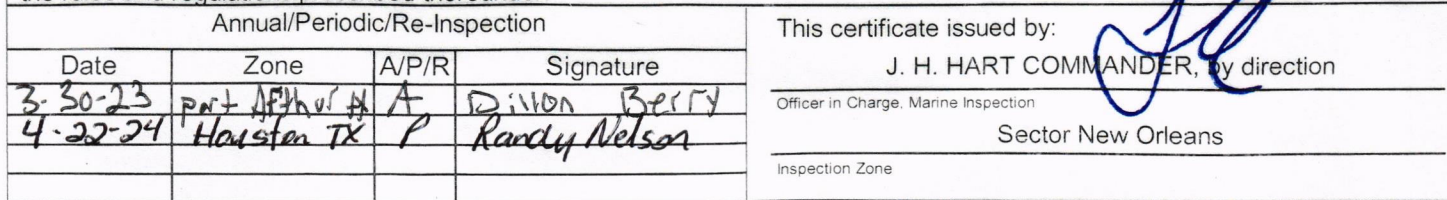 Annual/Periodic/Re-Inspection
Date Zone A/P/R Signature
3-30-23 port Arthur tx A Dillon Berry
4-22-24 Houston TX P Randy Nelson
This certificate issued by:
J. H. HART COMMANDER, by direction
Officer in Charge, Marine Inspection
Sector New Orleans
Inspection Zone